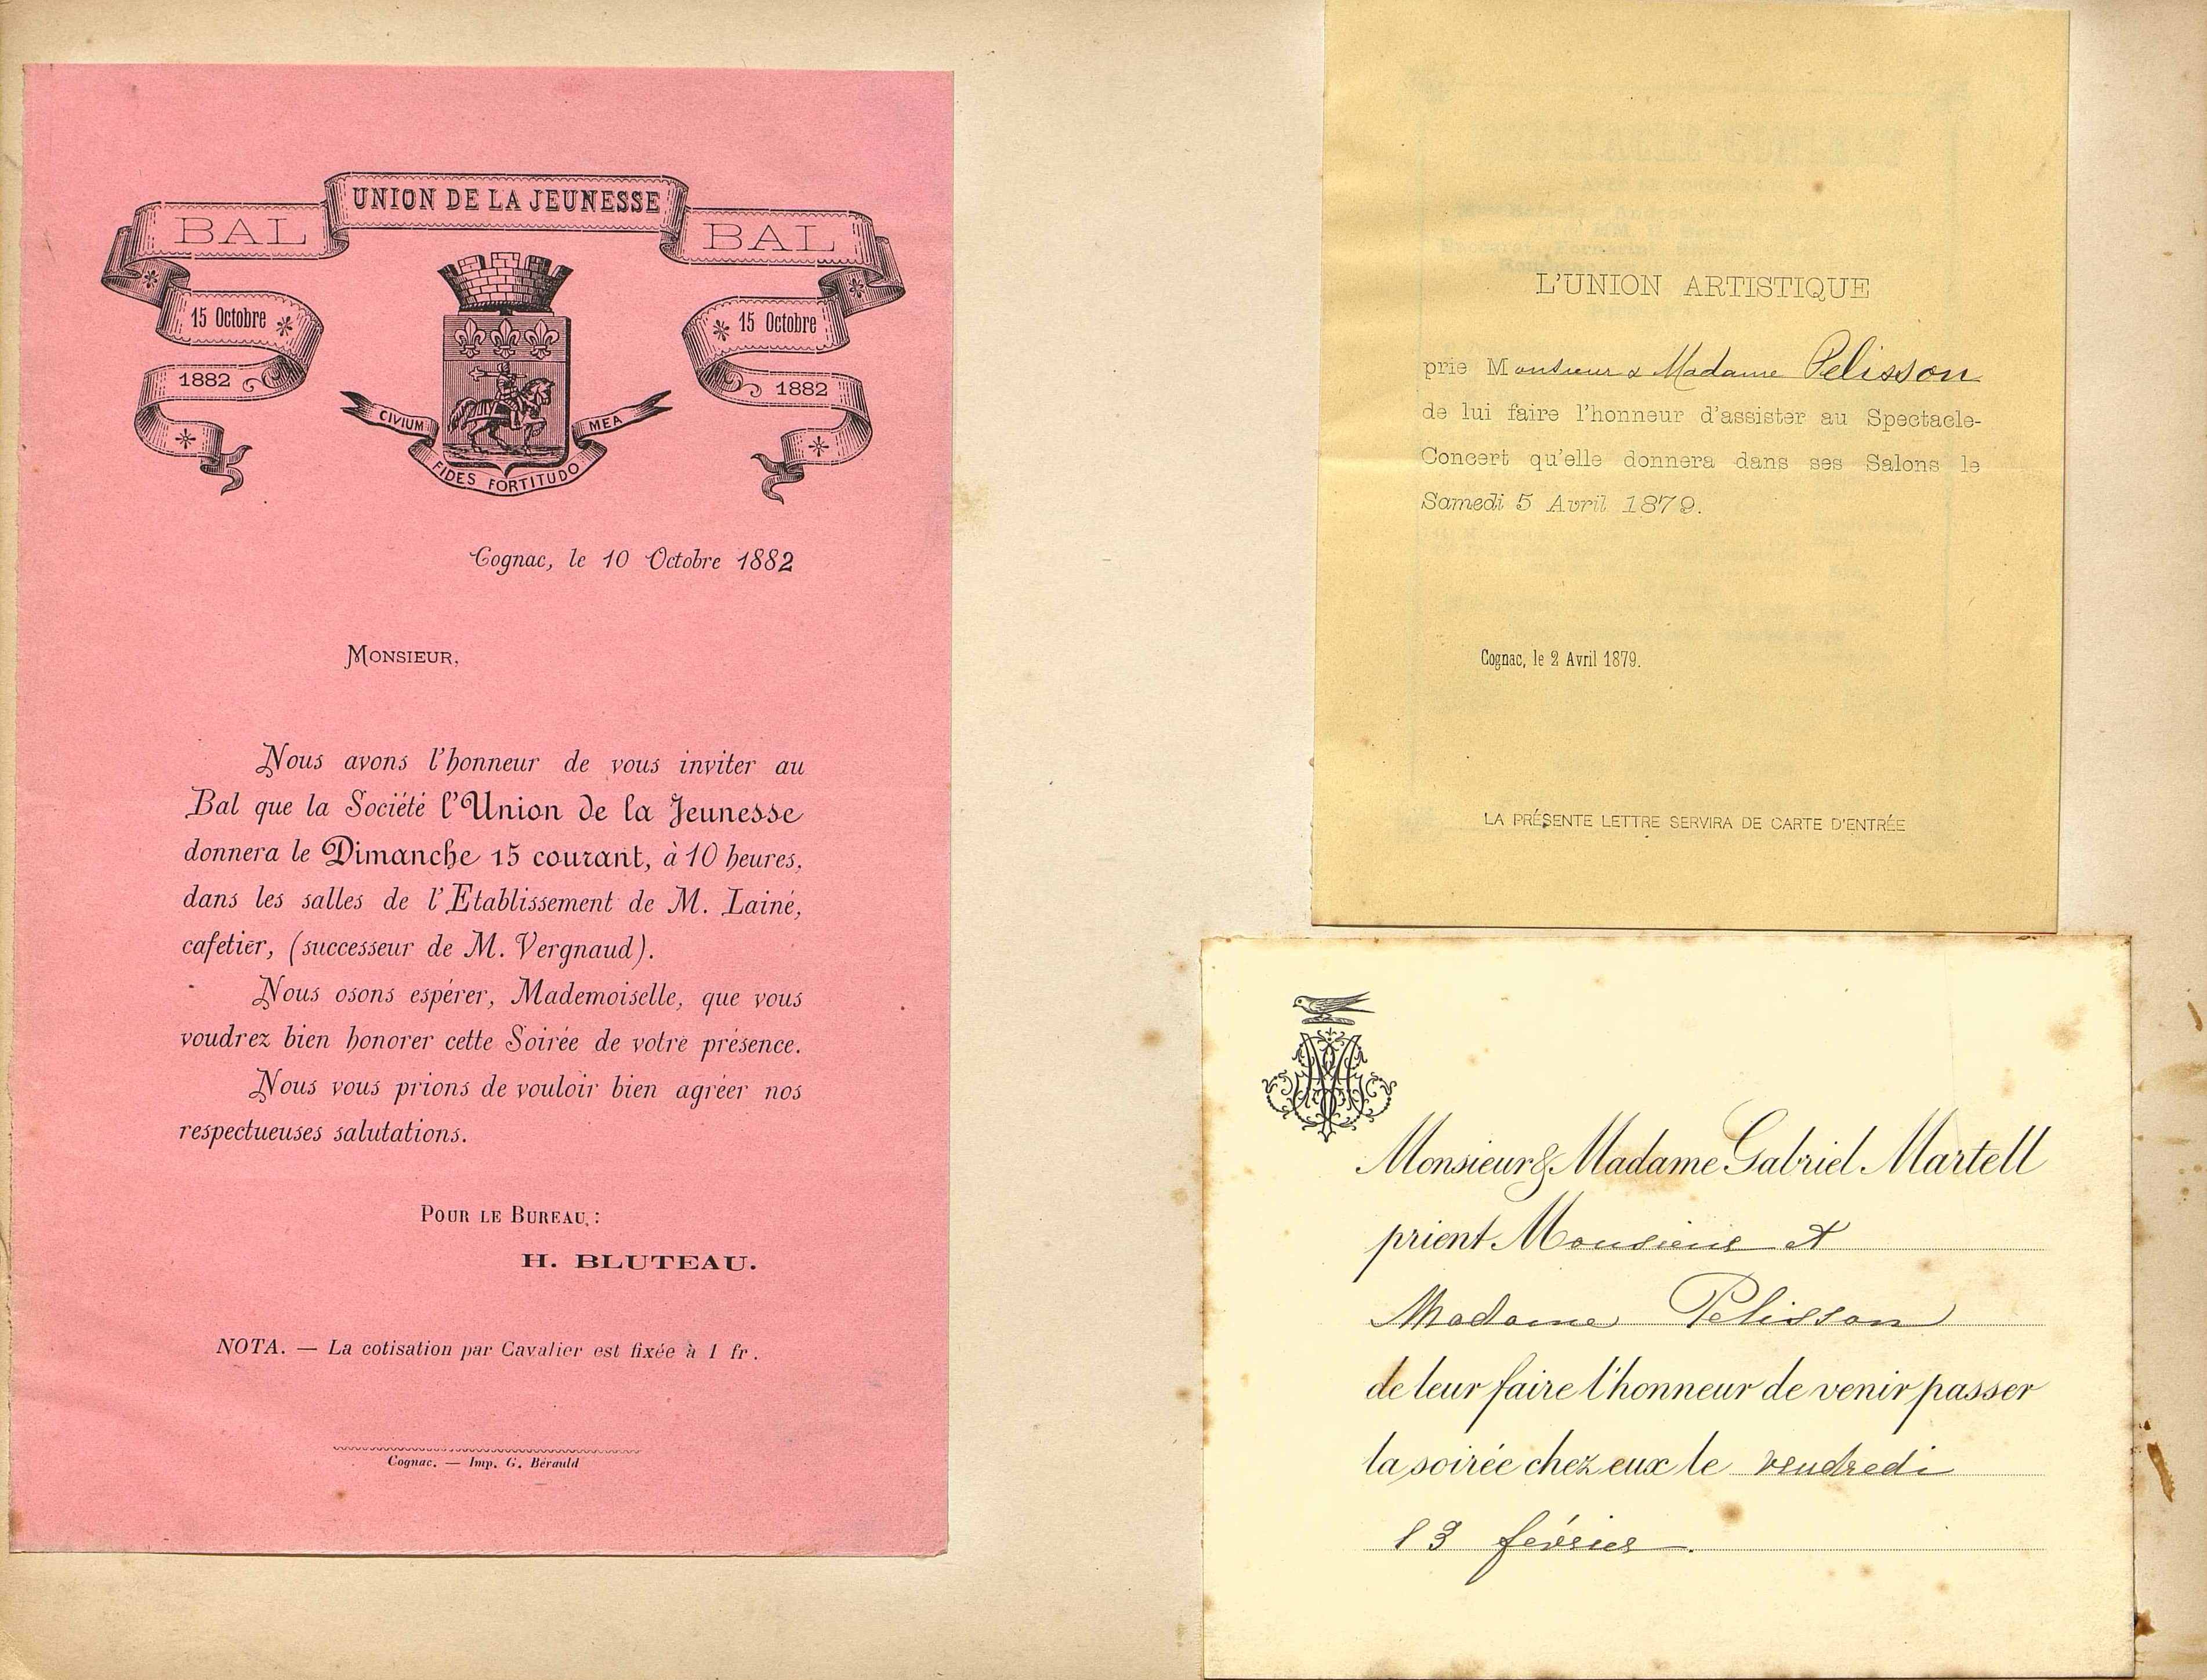 UNION DE LA JEUNESSE
BAL
BAL
15 Octobre
15 Octobre
1882
1882
CIVIUM
MEA
FIDES FORTITUDO
Cognac, le 10 Octobre 1882
MONSIEUR,
Nous avons l'honneur de vous inviter au
Bal que la Société l'Union de la Jeunesse
donnera le Dimanche 15 courant, à 10 heures,
dans les salles de l'Etablissement de M. Lainé,
cafetier, (successeur de M. Vergnaud).
Nous osons espérer, Mademoiselle, que vous
voudrez bien honorer cette Soirée de votre présence.
Nous vous prions de vouloir bien agréer nos
respectueuses salutations.
POUR LE BUREAU :
H. BLUTEAU.
NOTA. — La cotisation par Cavalier est fixée à 1 fr.
Cognac. — Imp. G. Bérauld
L'UNION ARTISTIQUE
prie Monsieur & Madame Pelisson
de lui faire l'honneur d'assister au Spectacle-
Concert qu'elle donnera dans ses Salons le
Samedi 5 Avril 1879.
Cognac, le 2 Avril 1879.
LA PRÉSENTE LETTRE SERVIRA DE CARTE D'ENTRÉE
Monsieur & Madame Gabriel Martell
prient Monsieur et
Madame Pelisson
de leur faire l'honneur de venir passer
la soirée chez eux le vendredi
13 février.